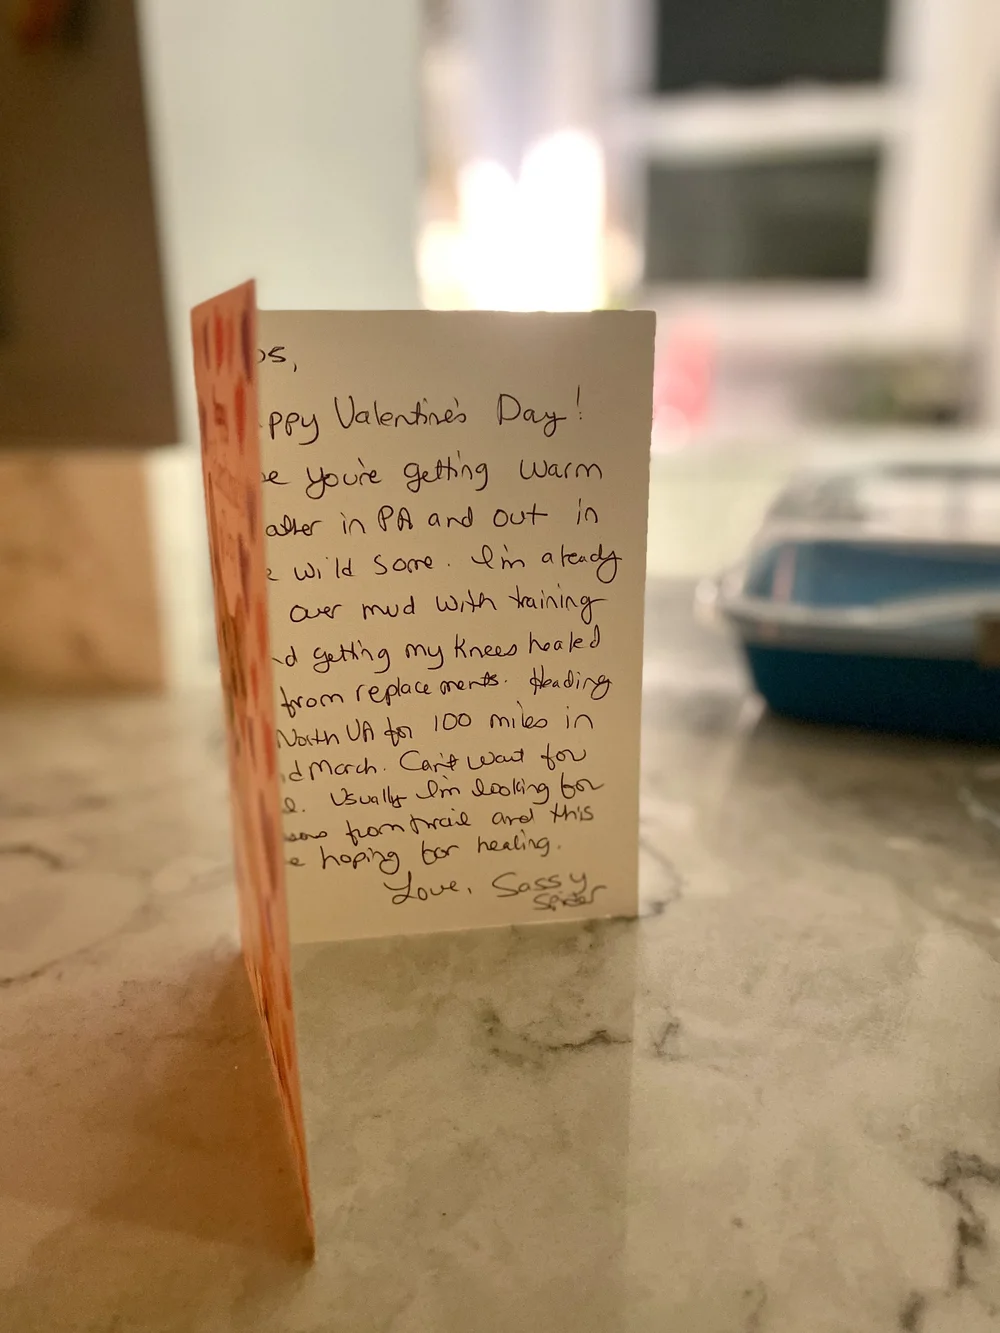 os,
ppy Valentine's Day!
you're getting warm
in PA and out in
wild some. I'm already
over mud with training
d getting my knees healed
from replacements. Heading
North VA for 100 miles in
d March. Can't wait for
Usually I'm looking for
from trail and this
hoping for healing.
Love, Sassy
Spider